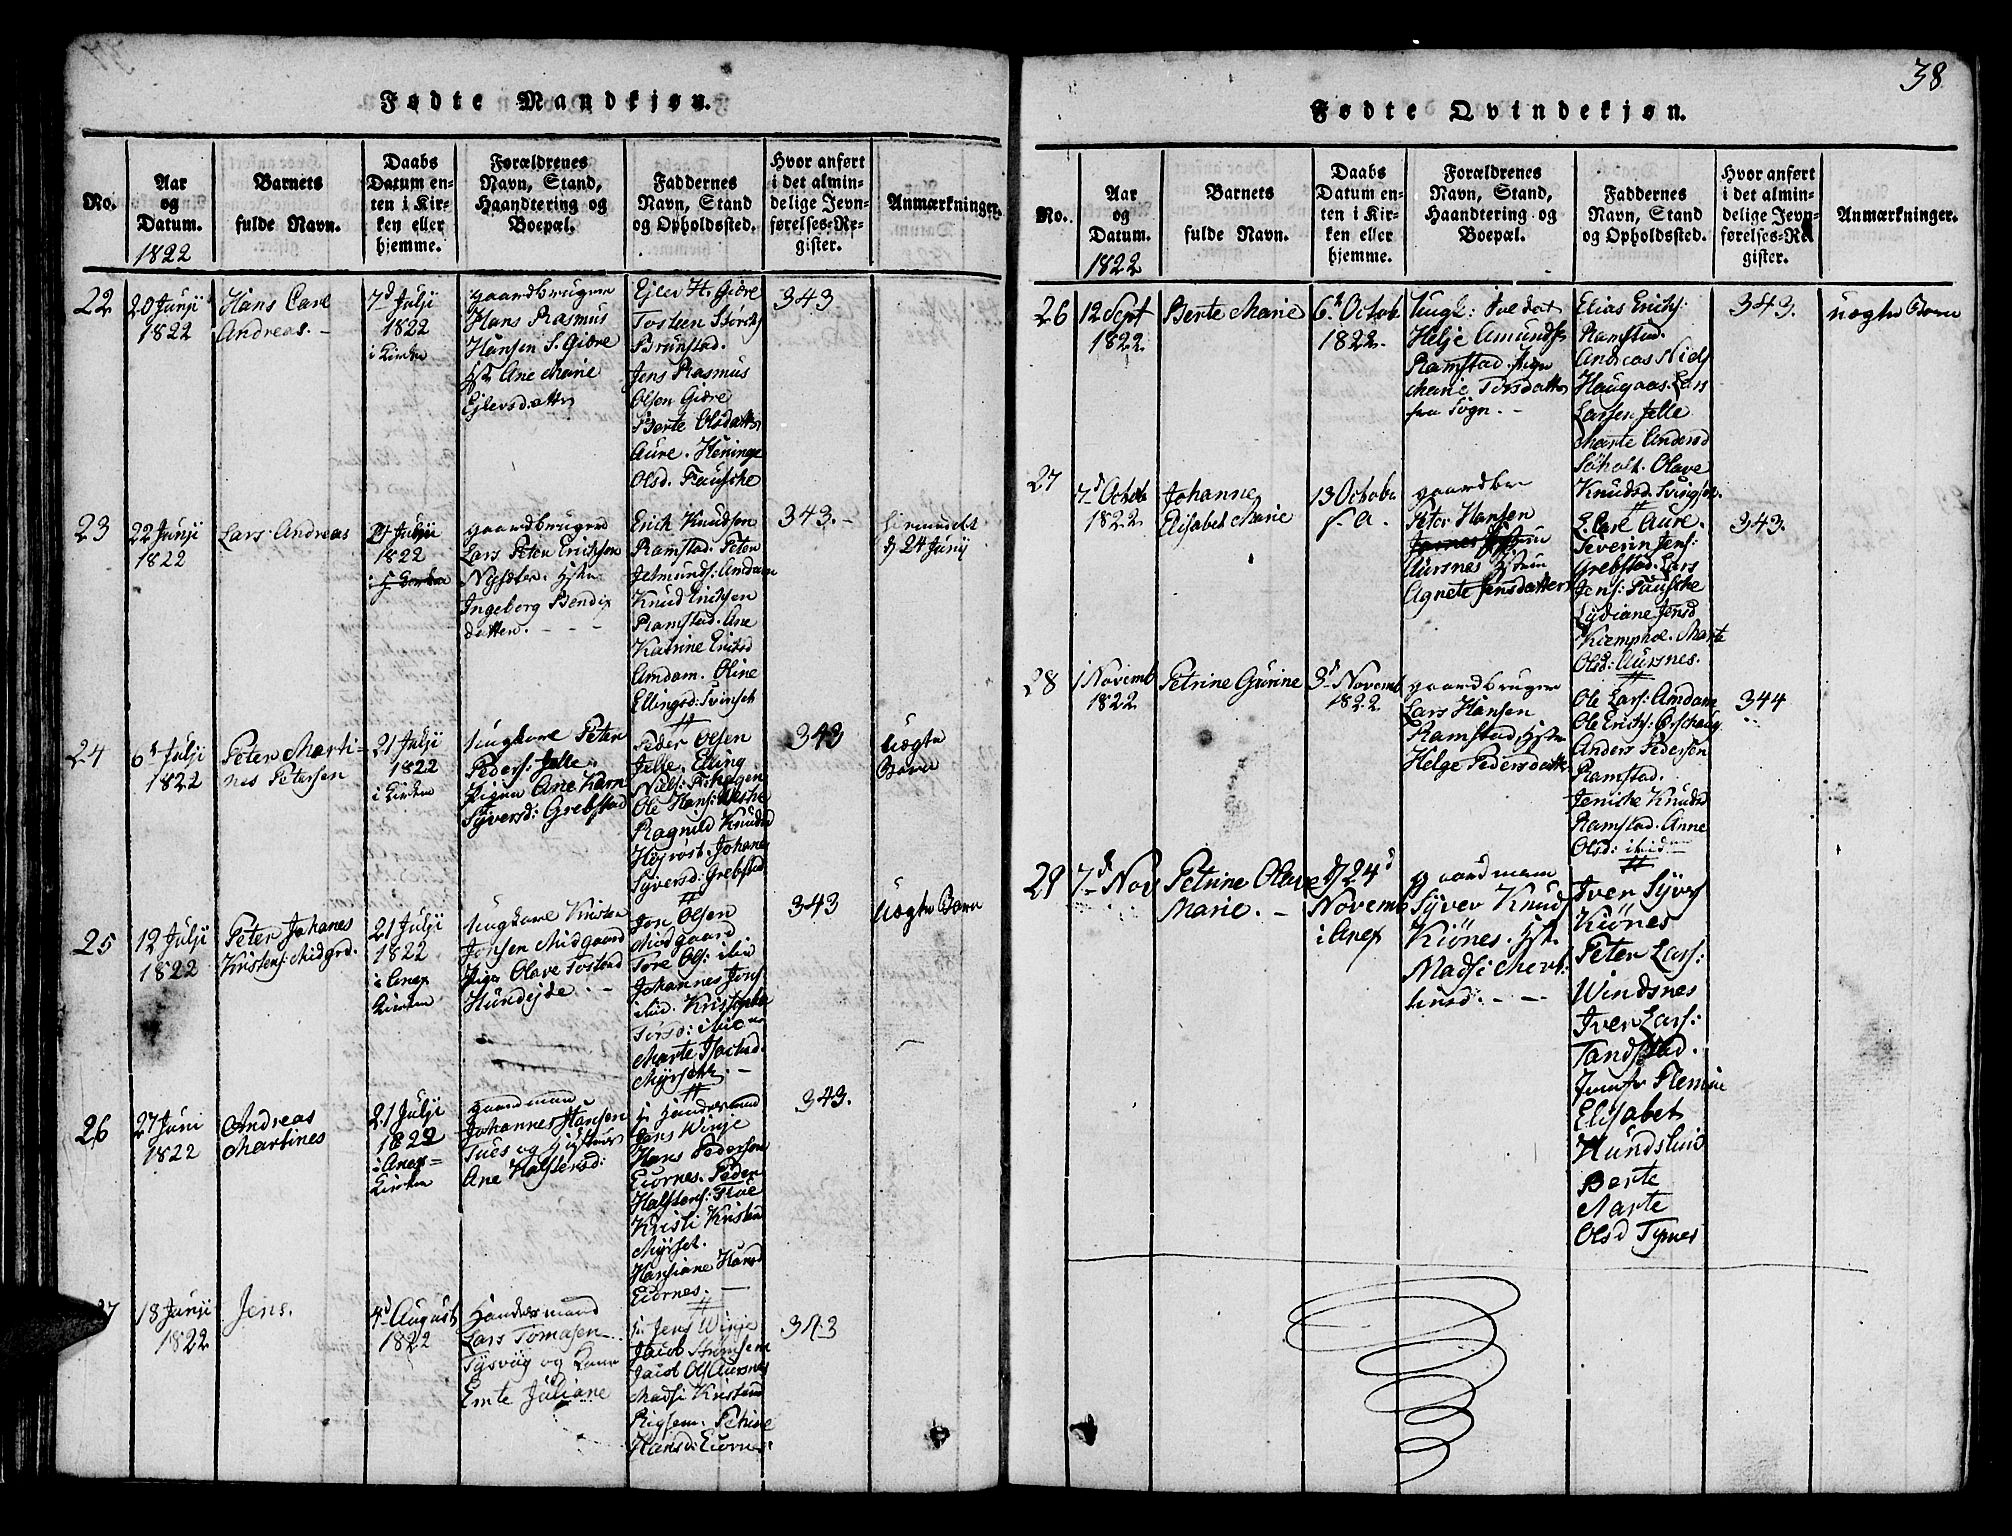 Fødte Mandkjøn.
No.
Aar
og
Datum.
1822
Barnets
fulde Navn.
Daabs
Datum en-
ten i Kir-
ken eller
hjemme.
Forældrenes
Navn, Stand,
Haandtering og
Boepæl.
Faddernes
Navn, Stand
og Opholdssted.
Hvor anført
i det almin-
delige Jevn-
førelses-Re-
gister.
Anmærkninger.
22
20 Junji
1822
Hans Carl
Andreas. -
7d Julji
1822
i Kirken
gaardbruger
Hans Rasmus
Hansen S. Giøre
Hst Ane Marie
Ejlersdatter
Ejler H. Giøre
Tosteen
Brunstad.
Jens Rasmus
Olsen Giøre
Berte Olsdatter
Aure. Heninge
Olsd. Fauske
343
23
22 Junji
1822
Lars Andreas
Julji
1822
gaardbruger
Lars Peter Erichsen
Nysæter. Hstr
Ingeborg Bendix
datter. - - -
Erich Knudsen
Ramstad. Peter
Jetmunds: Amdam
Knud Erichsen
Ramstad. Ane
Katrine Ericksd
Amdam. Oline
Ellingsd: Svinset
343. -
24 Junij
24
6d Julji
1822
Peter Marti-
nes Petersen
21 Julji
1822
i Kirken
ungkare Peter
Peders: Jelle.
Pigen Ane Karn
Syversd: Grebstad
Peder Olsen
Jelle. Elling
Ole Hans:
Ragnild Knudsd
Johane
Syversd: Grebstad
343
Uægte
Barn
25
12 Julji
1822
Peter Johanes
Kristens: Midgrd.
21 Julji
1822
i Anex
Kirken
ungkare Kristen
Jonsen Midgaard
Piga Olave Tostad
Hundejde. -
Jon Olsen
Midgaard
Tore Ols: ibid
Johannes Jons
ibid. Kristense
Torsd: ibid
Marte
Myrseth. -
343
Uægte Barn
26
27 Juni
1822
Andreas
Martines
21 Julji
1822
i Anex-
Kirken
gaardmand
Johannes Hansen
Tues og Hustrue
Ane Halstensd:
Jens Winje
Hans Pedersen
Eiornes. Peder
Halstens: Floe
Kristi Kristensd
Myrset.
Hansiane Hansd
Eiornes. -
343.
18 Junji
1822
Jens.
4d August
1822
Huusmand
Lars Tomasen
Tysvog og Kone
Emte Juliane
Jens Winje
Jacob
Jacob Ols Aursnes
Madsi Kristensd
Hansd: Eiornes
343
38
Fødte Qvindekjøn.
No.
Aar
og
Datum.
1822
Barnets
fulde Navn.
Daabs
Datum en-
ten i Kir-
ken eller
hjemme.
Forældrenes
Navn, Stand,
Haandtering og
Boepæl.
Faddernes
Navn, Stand
og Opholdssted.
Hvor anført
i det almin-
delige Jevn-
førelses-Re-
gister.
Anmærkninger.
26
12 Sept
1822
Berte Marie
6d Octob
1822.
Ungk: Soldat
Helje Amunds
Ramstad. Pigen
Marie Torsdatter
fra Sogn. -
Elias Erichs:
Ramstad.
Andreas Niels
Haugaas. Lars
Larsen Jelle
Marte Andersd
Søholt. Olave
Knudsd. Svingset.
343.
uægte Barn
27
7d Octob
1822
Johanne
Elisabet Marie
13 Octobr
s. a.
gaardbr
Peter Hansen
Aursnes Hstru
Agnete Jensdatter
E. Carl Aure.
Severin Jens:
Grebstad. Lars
Jens: Fauske
Lydiane Jensd
Kiemphol. Marte
Olsd: Aursnes.
343.
28
1 Novemb
1822
Petrine Gurine
3d Novemb
1822
gaardbruger
Lars Hansen
Ramstad. Hstr
Helge Pedersdatter
Ole Lars: Amdam
Ole Erichs: Ørschoug
Anders Pedersen
Ramstad.
Jeniche Knudsd
Ramstad. Anne
Olsd: ibid
344
29
7d Nov
Petrine Olave
Marie. -
d 24d
Novemb
i Anex
gaardmann
Syver Knuds
Kiönes. Hstr
Madsi Mort:
sensd. - -
Iver Syvers
Kiönes
Peter Lars:
Windsnes
Iver Lars:
Tandstad.
Jomfr Flemin
Elisabet
Hundslund
Berte
Marte
Olsd Tynes